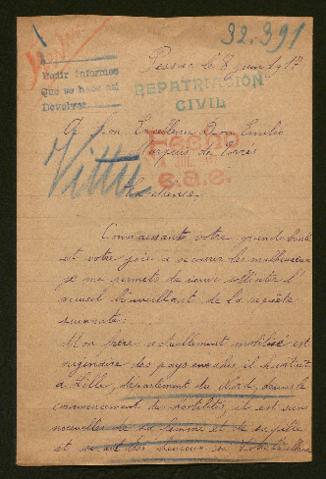 32.391
Pessac le 8 juin 1917
A
Pedir informes
Que se hace así
Devolver
REPATRIACIÓN
CIVIL
A Son Excellence Don Emilio
Marquis de
Fecho
Vittu
Connaissant votre grande bonté
et votre joie à secourir les malheureux
je me permets de venir solliciter l'
accueil bienveillant de la requête
suivante:
Mon frère actuellement mobilisé est
originaire des pays envahis, il habitait
à Lille, département du Nord, depuis le
commencement des hostilités, il est sans
nouvelles de sa femme et de sa fille
et